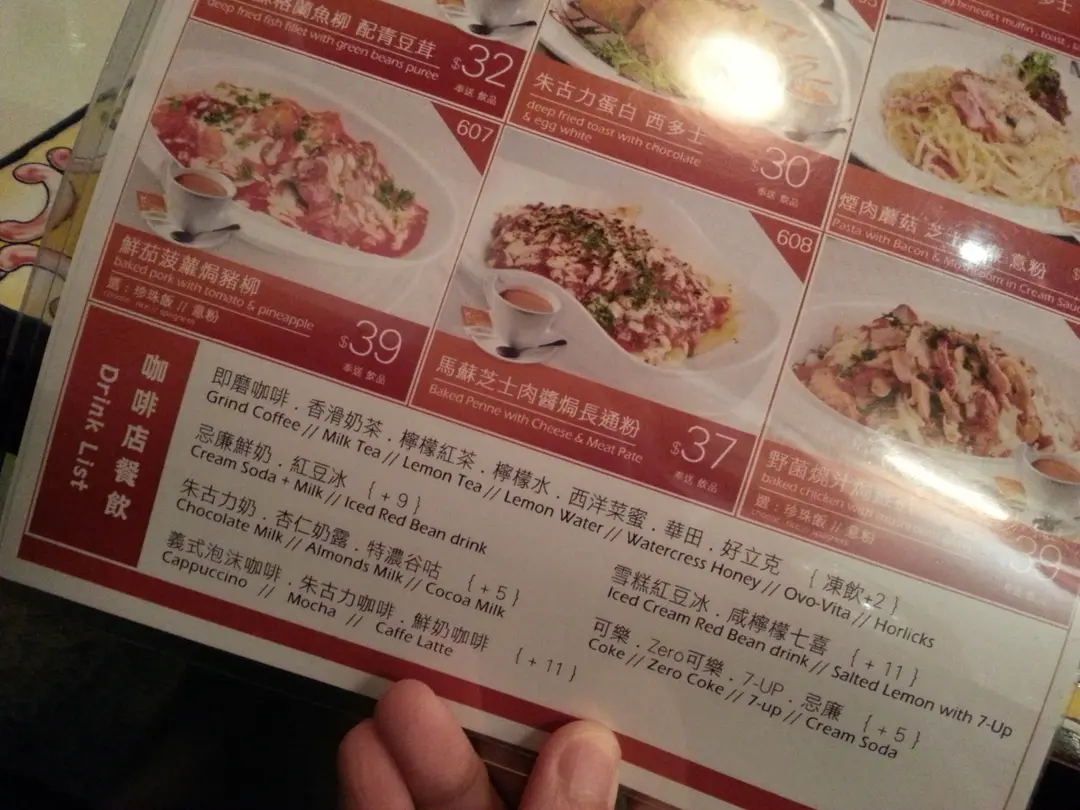 格蘭魚柳 配青豆茸
deep fried fish fillet with green beans puree
$32
奉送 飲品
朱古力蛋白 西多士
deep fried toast with chocolate
& egg white
$30
奉送 飲品
煙肉蘑菇 芝士
意粉
Pasta with Bacon &
in Cream
607
鮮茄菠蘿焗豬柳
baked pork with tomato & pineapple
選：珍珠飯 // 意粉
choose: rice // spaghetti
$39
奉送 飲品
608
馬蘇芝士肉醬焗長通粉
Baked Penne with Cheese & Meat Pate
$37
奉送 飲品
野菌燒汁焗
baked chicken with
選：珍珠飯 // 意粉
choose: rice // spaghetti
39
咖啡店餐飲
Drink List
即磨咖啡．香滑奶茶．檸檬紅茶．檸檬水．西洋菜蜜．華田．好立克 { 凍飲+2 }
Grind Coffee // Milk Tea // Lemon Tea // Lemon Water // Watercress Honey // Ovo-Vita // Horlicks
忌廉鮮奶．紅豆冰 { + 9 }
Cream Soda + Milk // Iced Red Bean drink
朱古力奶．杏仁奶露．特濃谷咕 { + 5 }
Chocolate Milk // Almonds Milk // Cocoa Milk
義式泡沫咖啡．朱古力咖啡．鮮奶咖啡 { + 11 }
Cappuccino // Mocha // Caffe Latte
雪糕紅豆冰．咸檸檬七喜 { + 11 }
Iced Cream Red Bean drink // Salted Lemon with 7-Up
可樂．Zero可樂．7-UP．忌廉 { + 5 }
Coke // Zero Coke // 7-up // Cream Soda